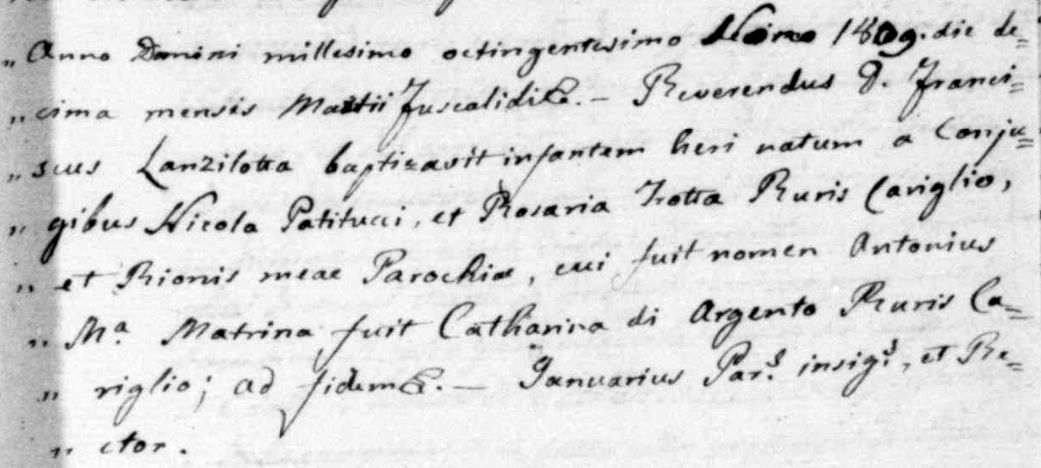 „ Anno Domini millesimo octingentesimo Nono 1809. die de=
„ cima mensis Martii Fuscaldi &. — Reverendus D. Franci=
„ scus Lanzilotta baptizavit infantem heri natum a Conju=
„ gibus Nicola Patitucci, et Rosaria Trotta Ruris Cariglio,
„ et Rionis meae Parochiæ, cui fuit nomen Antonius
„ Mª Matrina fuit Catharina di Argento Ruris Ca=
„ riglio; ad fidem &. — Januarius Par.s insig.s, et Re=
„ ctor.